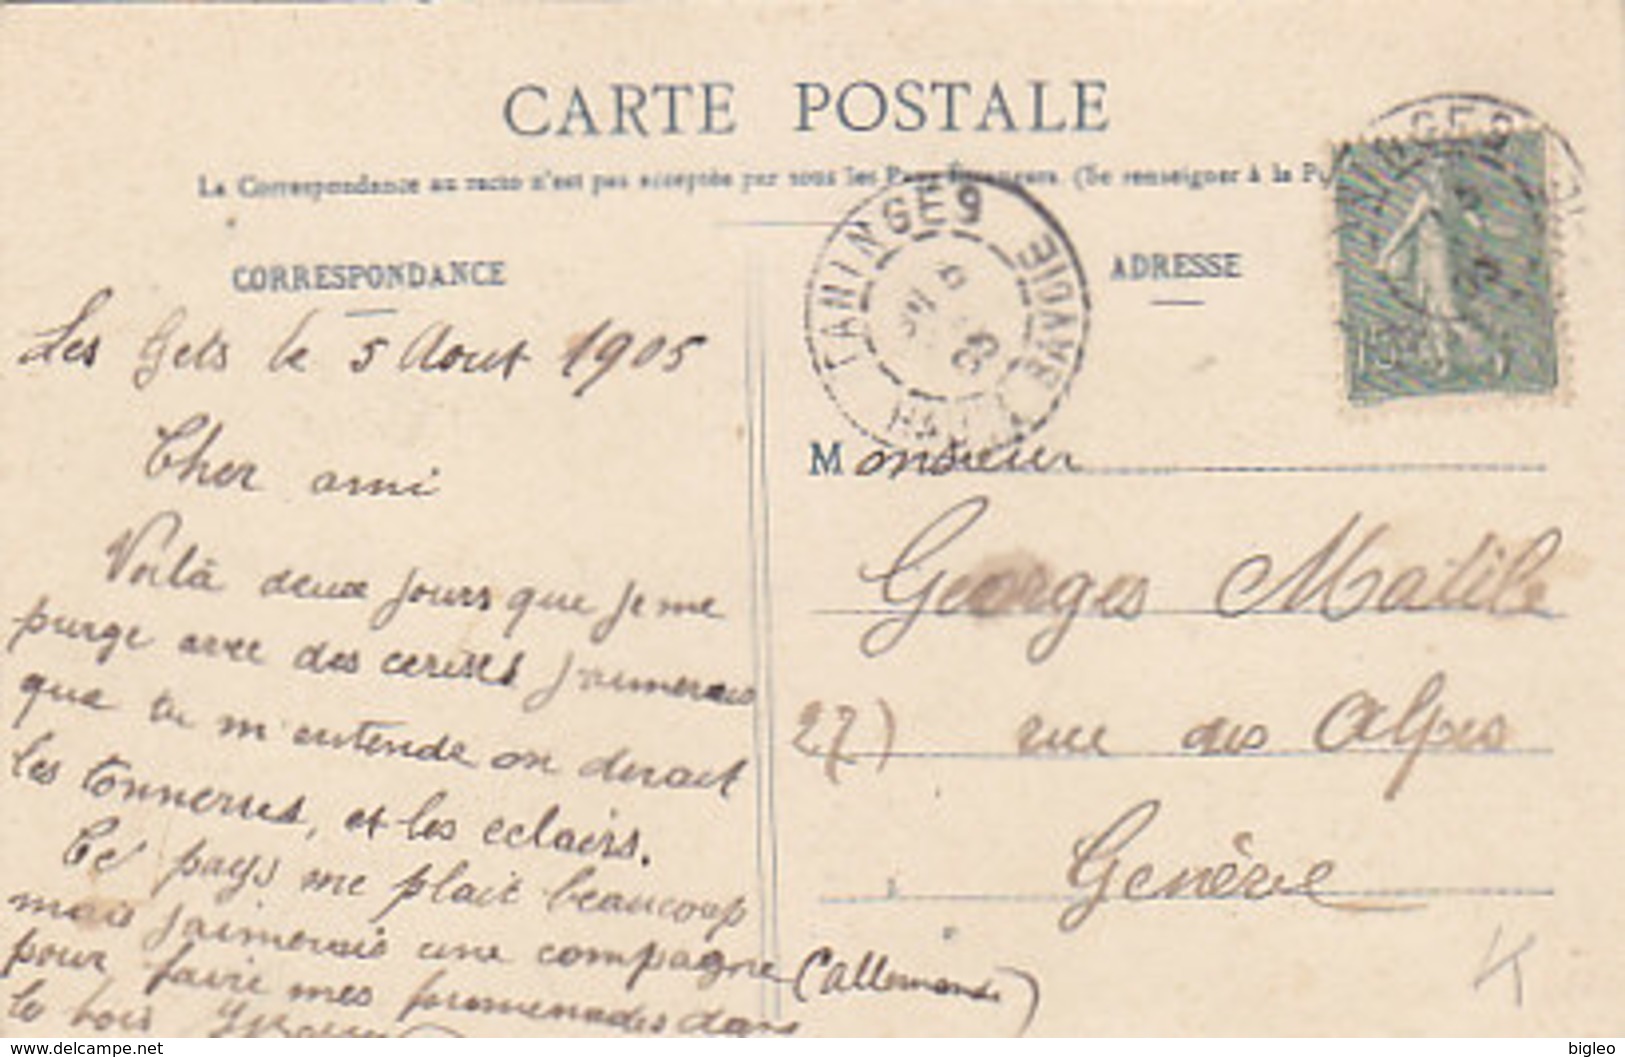 CARTE POSTALE
La Correspondance au recto n'est pas acceptée par tous les Pays Étrangers. (Se renseigner à la P
CORRESPONDANCE
ADRESSE
TANINGES
HAUTE SAVOIE
Les Gets le 5 Aout 1905
Cher ami
Voilà deux jours que je me
purge avec des cerises j'aimerais
que tu m'entende on dirait
les tonnerres, et les eclairs.
Ce pays me plait beaucoup
mais j'aimerais une compagne (allemande)
pour faire mes promenades dans
le bois
Monsieur
Georges Matile
27) rue des Alpes
Genève
https://www.delcampe.net
bigleo